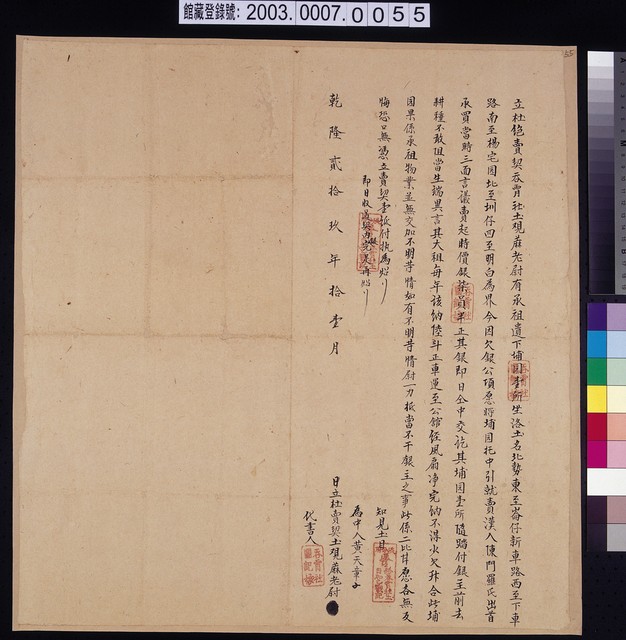 館藏登錄號: 2003.0007.0055
立杜絕賣契吞霄社土覡蔴老尉有承祖遺下埔園壹所坐洛土名北勢東至崙仔新車路西至下車
路南至楊宅園北至圳仔四至明白為界今因欠銀公項愿將埔園托中引就賣漢人陳門羅氏出首
承買當時三面言議賣起時價銀柒員半正其銀即日仝中交訖其埔園壹所隨踏付銀主前去
耕種不敢阻當生端異言其大租每年該納陸斗正車運至公館經風扇净完納不得少欠升合此埔
園果係承祖物業並無交加不明等情如有不明等情尉一力抵當不干銀主之事此係二比甘愿各無反
悔恐口無憑立賣契壹紙付执為炤
即日收過契內銀完足再炤
乾隆貳拾玖年拾壹月
知見土目
為中人黃天章
日立杜賣契土覡蔴老尉
代書人